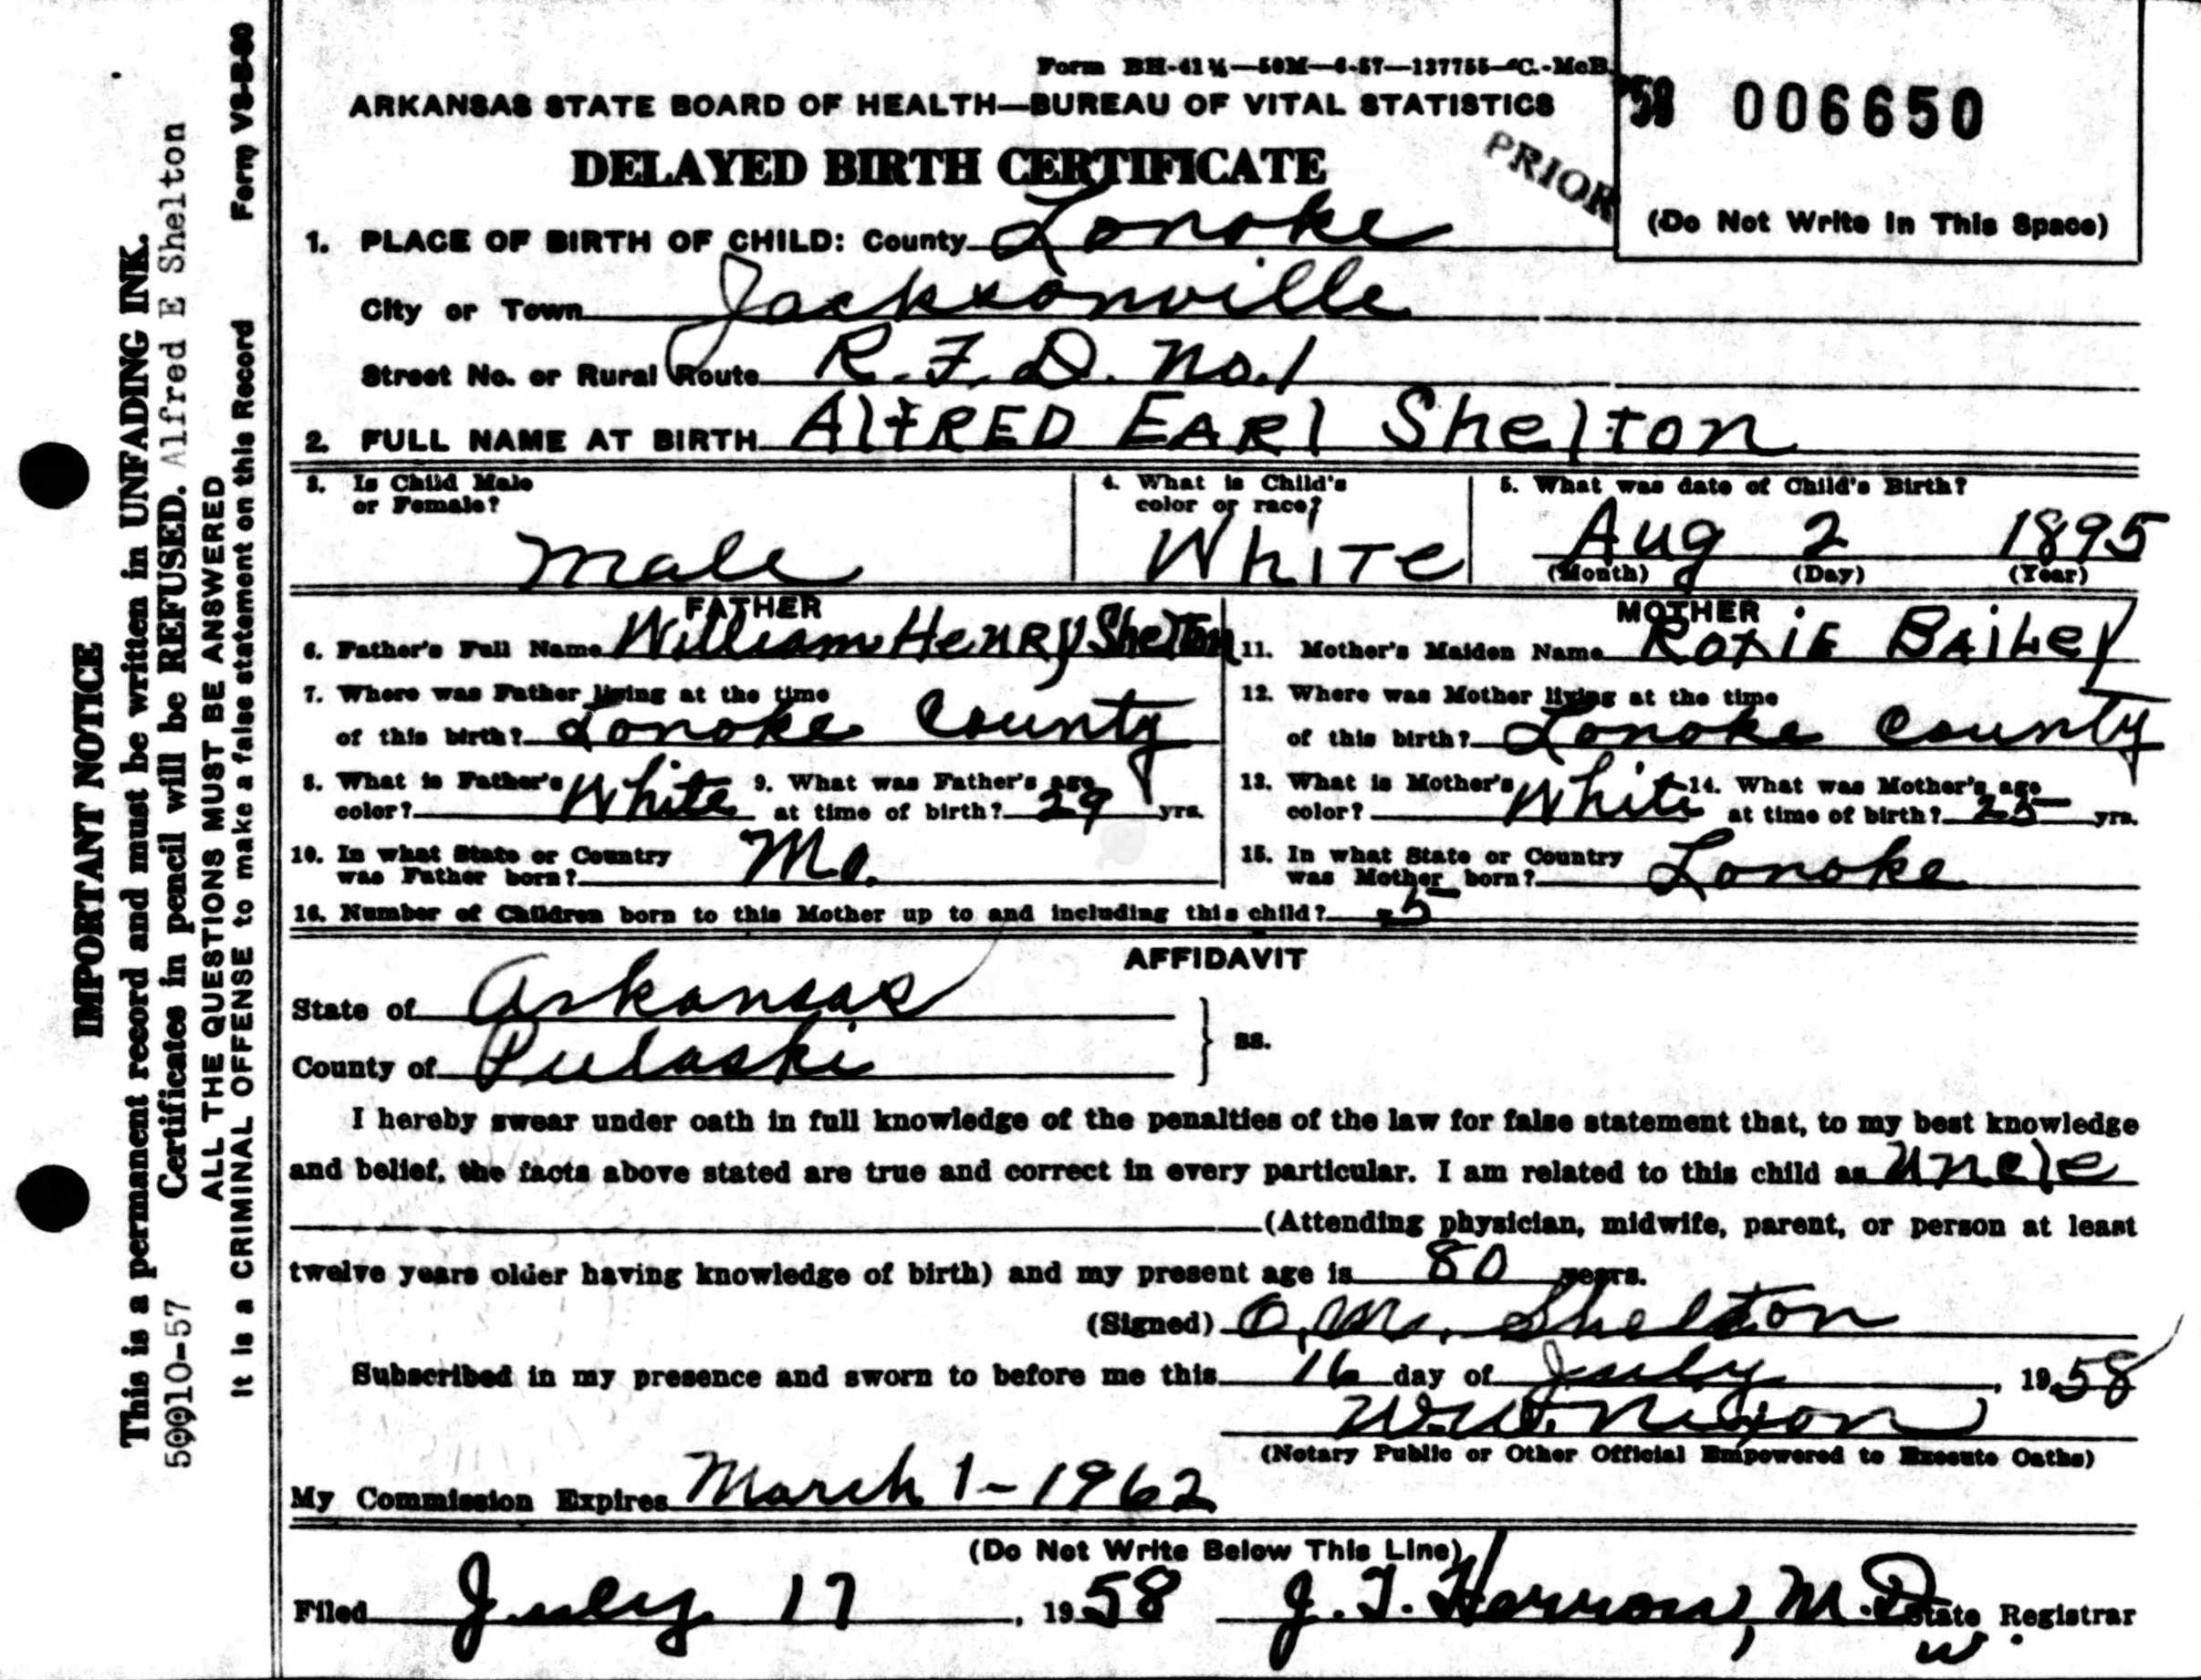 Form BH-41½—50M—6-57—137755—C.-McB.
ARKANSAS STATE BOARD OF HEALTH—BUREAU OF VITAL STATISTICS
DELAYED BIRTH CERTIFICATE
PRIOR
58 006650
(Do Not Write In This Space)
1. PLACE OF BIRTH OF CHILD: County Lonoke
City or Town Jacksonville
Street No. or Rural Route R.F.D. No.1
2. FULL NAME AT BIRTH AlfRED EARl Shelton
3. Is Child Male or Female?
Male
4. What is Child's color or race?
White
5. What was date of Child's Birth?
Aug 2 1895
(Month) (Day) (Year)
FATHER
6. Father's Full Name William Henry Shelton
7. Where was Father living at the time
of this birth? Lonoke County
8. What is Father's color? White 9. What was Father's age at time of birth? 29 yrs.
10. In what State or Country was Father born? Mo.
MOTHER
11. Mother's Maiden Name Roxie Bailey
12. Where was Mother living at the time
of this birth? Lonoke County
13. What is Mother's color? White 14. What was Mother's age at time of birth? 25 yrs.
15. In what State or Country was Mother born? Lonoke
16. Number of Children born to this Mother up to and including this child? 5
AFFIDAVIT
State of Arkansas
County of Pulaski
} ss.
I hereby swear under oath in full knowledge of the penalties of the law for false statement that, to my best knowledge
and belief, the facts above stated are true and correct in every particular. I am related to this child as Uncle
(Attending physician, midwife, parent, or person at least
twelve years older having knowledge of birth) and my present age is 80 years.
(Signed) O.M. Shelton
Subscribed in my presence and sworn to before me this 16 day of July, 1958
Nixon
(Notary Public or Other Official Empowered to Execute Oaths)
My Commission Expires March 1-1962
(Do Not Write Below This Line)
Filed July 17, 1958 J.T. Herron, M.D. State Registrar
w.
IMPORTANT NOTICE
This is a permanent record and must be written in UNFADING INK.
50010-57 Certificates in pencil will be REFUSED. Alfred E Shelton
ALL THE QUESTIONS MUST BE ANSWERED
It is a CRIMINAL OFFENSE to make a false statement on this Record Form VS-B-80